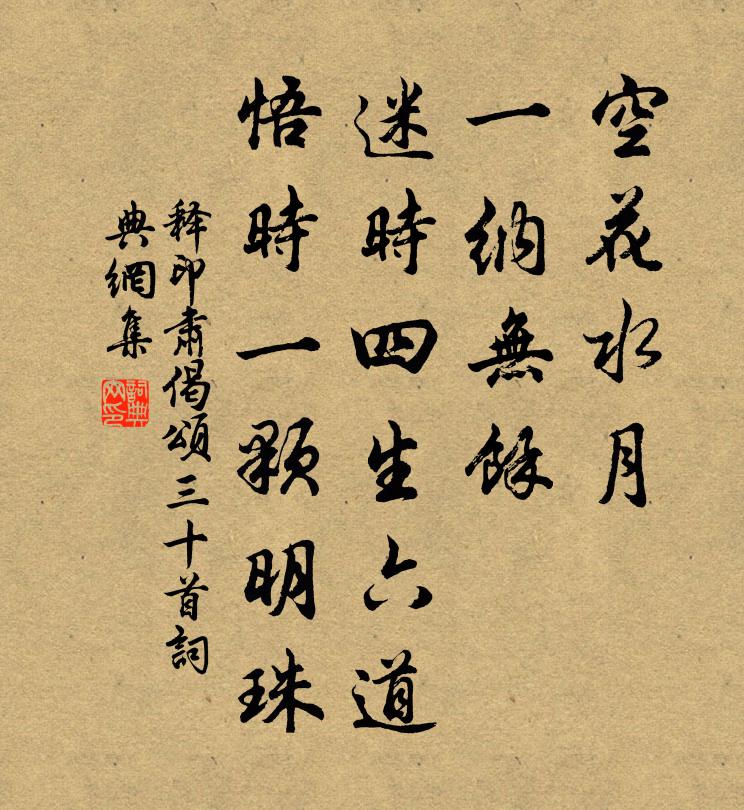 空花水月
一纳無餘
迷時四生六道
悟時一顆明珠
释印肃偈頌三十首詞
典網集
詞典网印